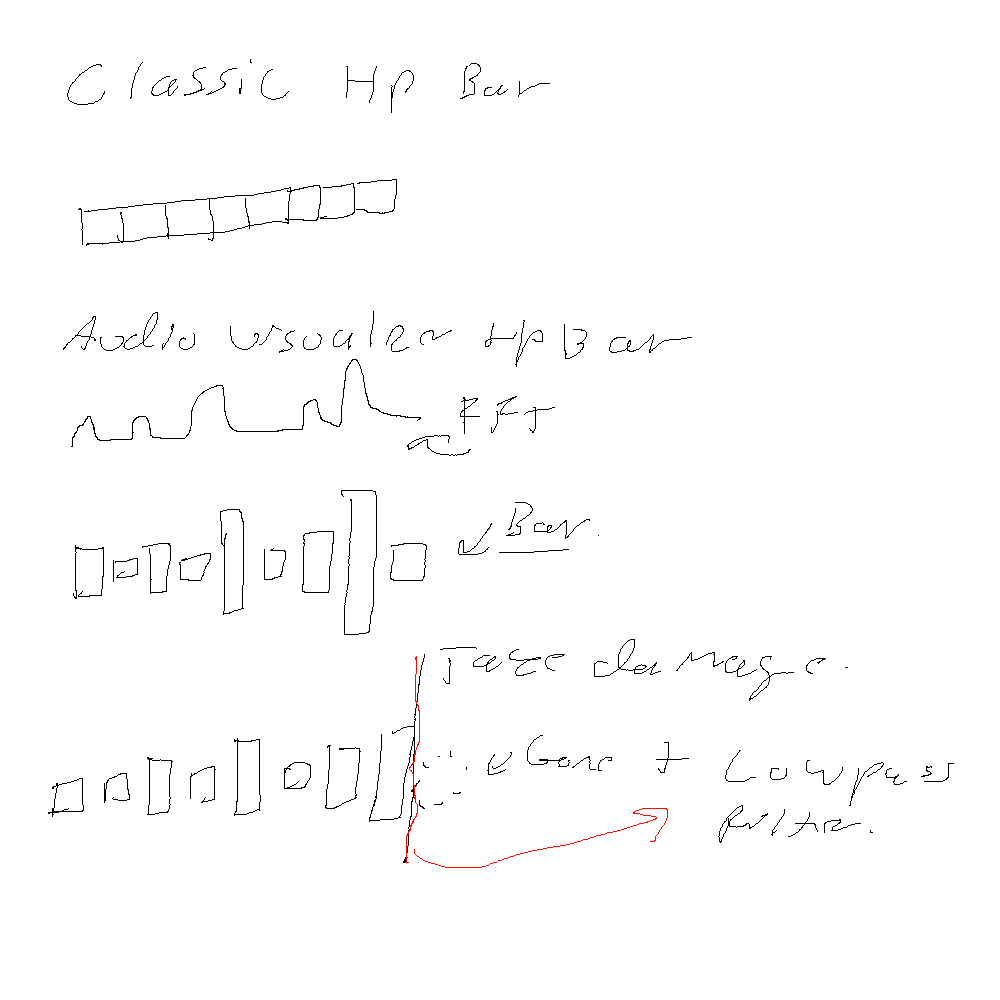 Classic Hp Bar
Audio visualizer Hp Bar
FFT
Bar.
Take damage.
Gone + Lowpass
filter.